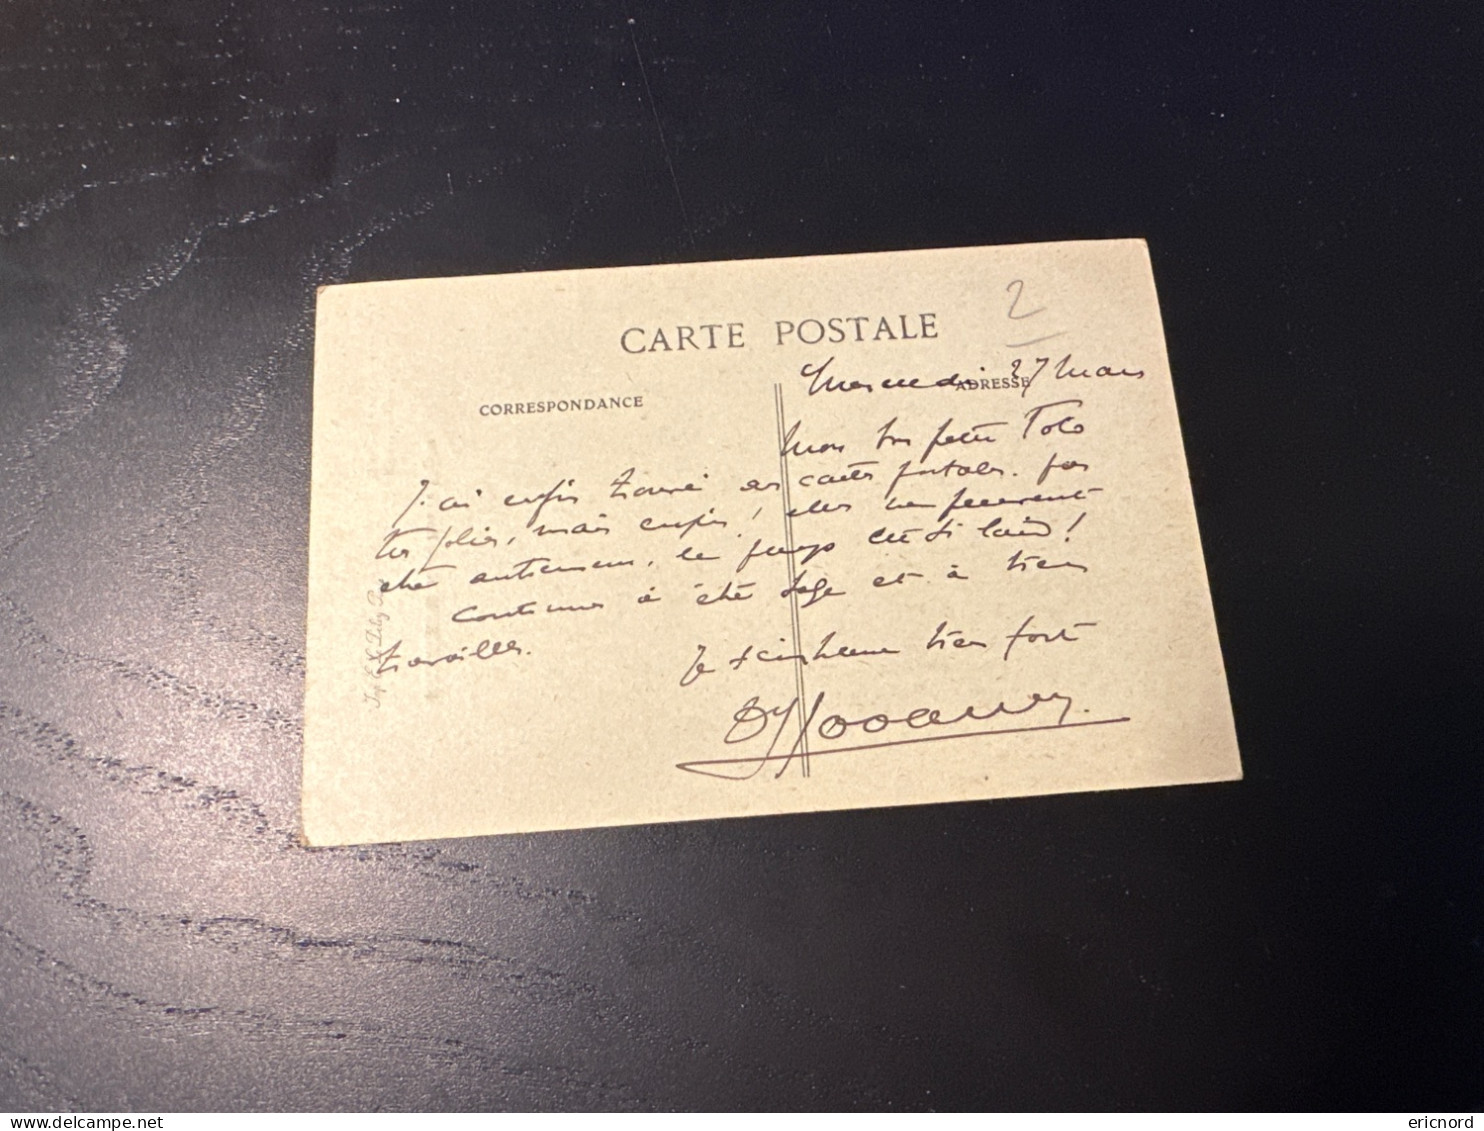 2
CARTE POSTALE
CORRESPONDANCE
ADRESSE
Mercredi 27 Mars
Mon petit Toto
J'ai enfin trouvé des cartes postales. pas
très jolies, mais enfin! elles ne peuvent
être autrement, le pays est si laid!
Continue à être sage et à bien
travailler.
Je t'embrasse bien fort
ericnord